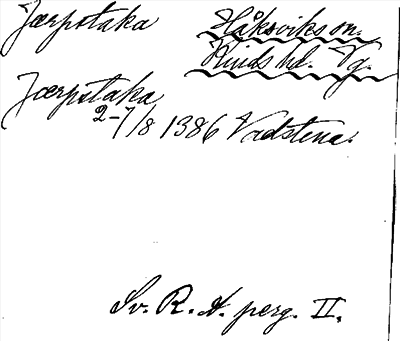 Jærpstaka Håksviks sn.
Kinds hd. Vg.
Jærpstaka
2-7/8 1386 Vadstena.
Sv. R. A. perg. II.